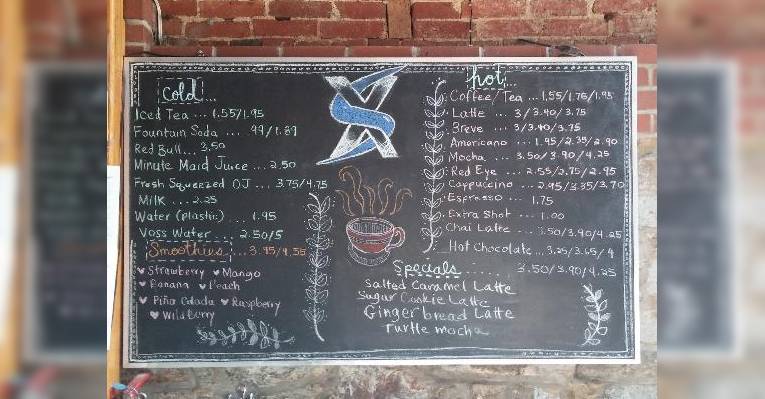 cold...
Iced Tea ... 1.55/1.95
Fountain Soda ... .99/1.89
Red Bull... 3.50
Minute Maid Juice ... 2.50
Fresh Squeezed OJ ... 3.75/4.75
Milk ... 2.25
Water (plastic) ... 1.95
Voss Water ... 2.50/5
Smoothies ... 3.95/4.55
Strawberry Mango
Banana Peach
Piña Colada Raspberry
Wild Berry
XS
hot...
Coffee/Tea ... 1.55/1.75/1.95
Latte ... 3/3.40/3.75
Breve ... 3/3.40/3.75
Americano ... 1.95/2.35/2.90
Mocha ... 3.50/3.90/4.25
Red Eye ... 2.55/2.75/2.95
Cappuccino ... 2.95/3.35/3.70
Espresso ... 1.75
Extra Shot ... 1.00
Chai Latte ... 3.50/3.90/4.25
Hot Chocolate ... 3.25/3.65/4
Specials ...... 3.50/3.90/4.25
Salted Caramel Latte
Sugar Cookie Latte
Gingerbread Latte
Turtle mocha